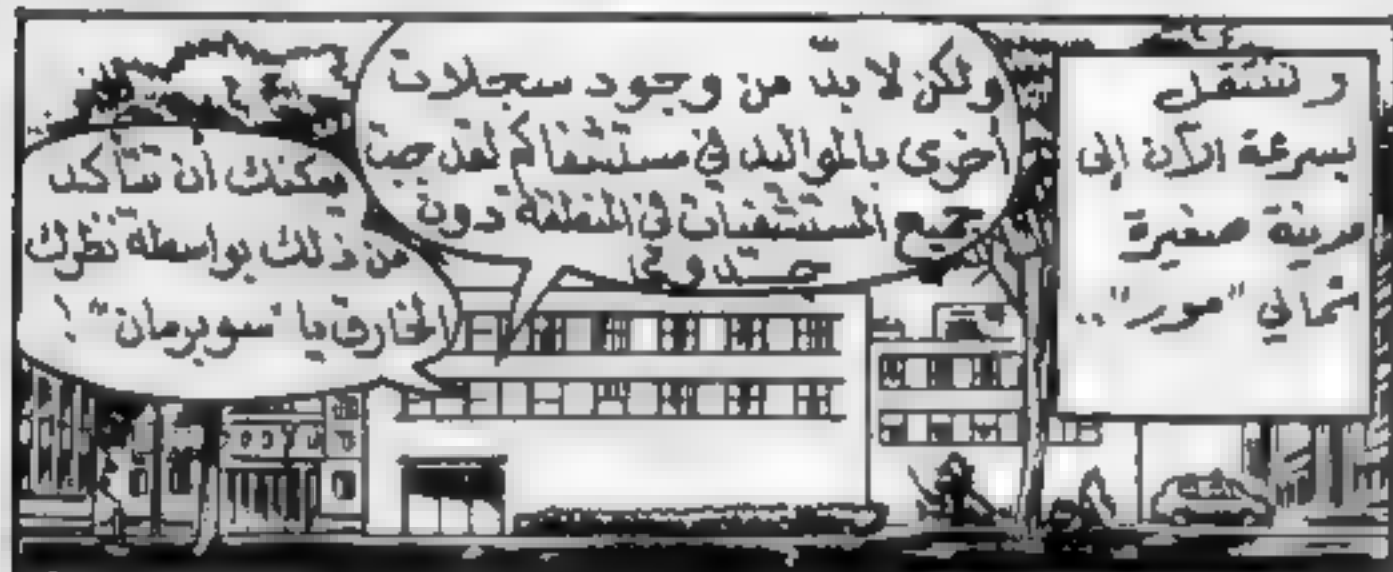 ولننتقل
بسرعة الآن إلى
مدينة صغيرة
شمالي "مور"..
ولكن لا بدّ من وجود سجلات
أخرى بالمواليد في مستشفاكم لقد جبت
جميع المستشفيات في المنطقة دون
جدوى
يمكنك أن تتأكد
من ذلك بواسطة نظرك
الخارق يا "سوبرمان"!